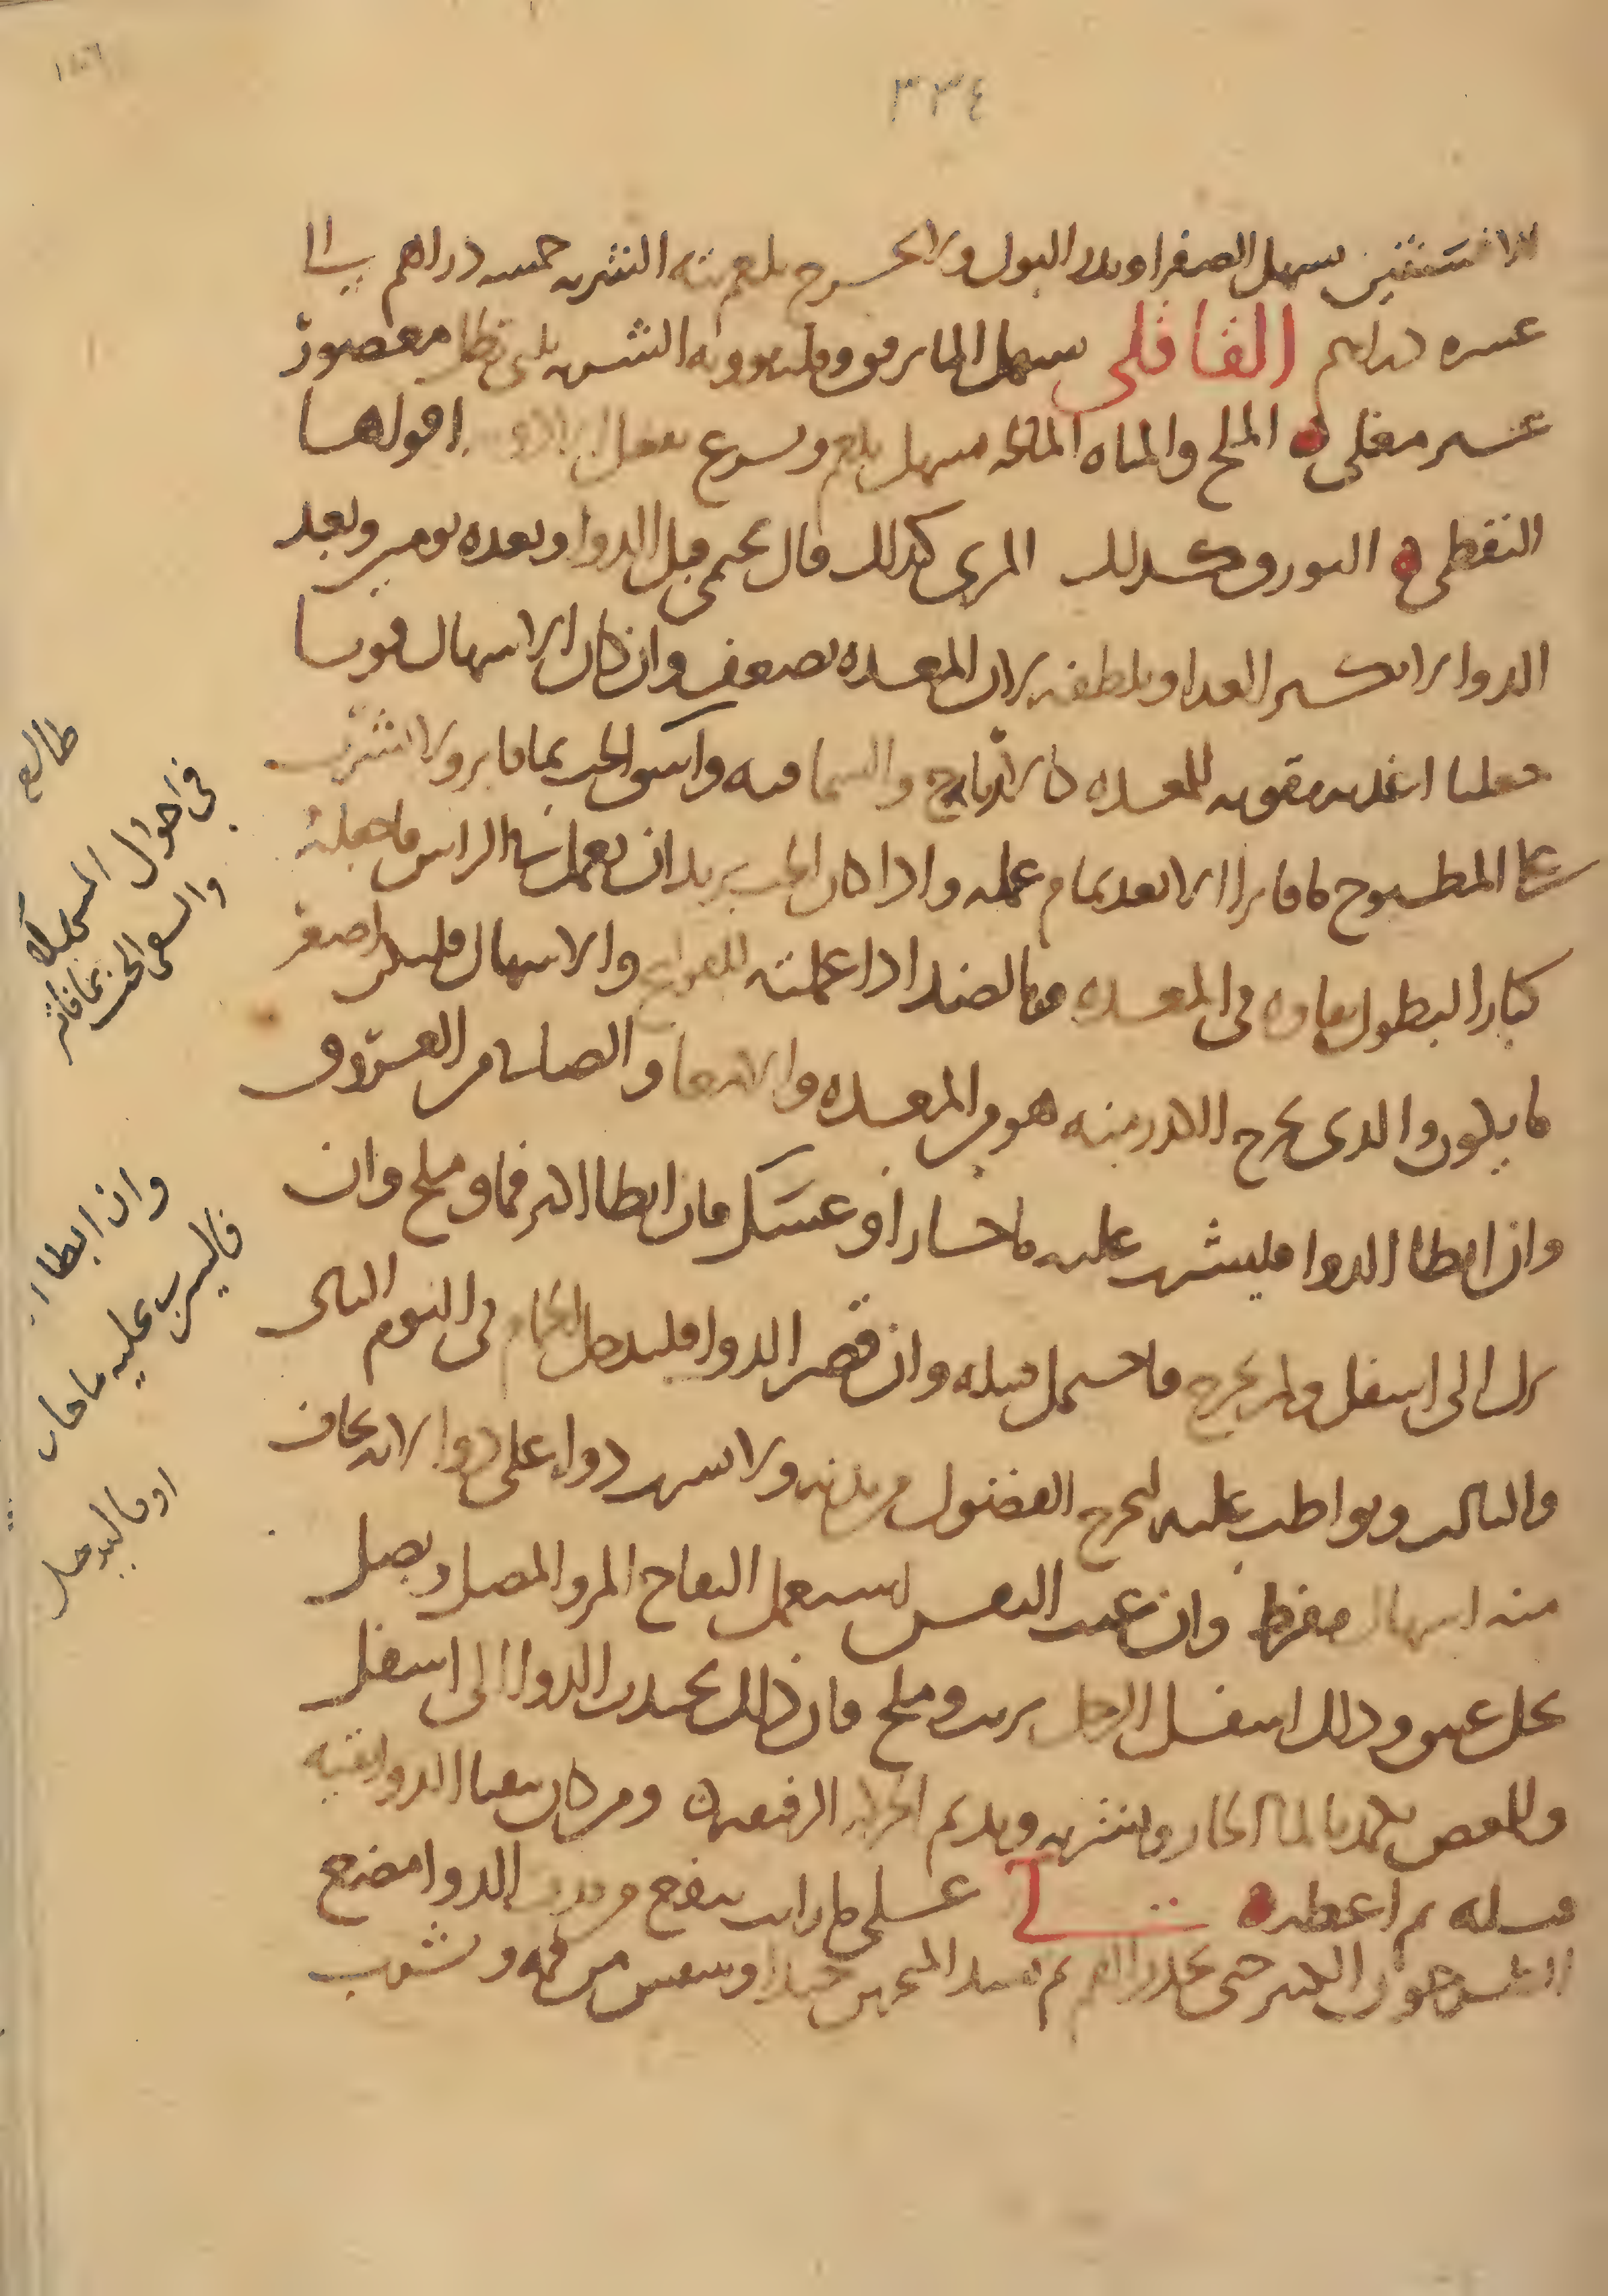 ٣٣٤
الافسنتين يسهل الصفرا ويدر البول ولا يخرج بلغم بته الشربه خمسه دراهم الى
عسره دراهم القاقلى يسهل الما برفق وفيه قوه الشربه ثلثى رطل معصور
غير مغلى الملح والمياه المالحه يسهل بلغم ويسرع بفعل الادويه اقواها
النفطى البورق كدلك المرى كدلك قال يحمى قبل الدوا وبعده يومين وبعد
الدوا لا يكسر الغدا ويلطفه لان المعده تضعف وان كان الاسهال قويا
جعلنا اغديه مقويه للمعده كالزيرباج والسماقيه واسق الحب بما فاتر ولا تشرب
على المطبوخ ما فاترا الا بعد تمام عمله وادا كان الحب يريد ان يعمل فى الراس فاجعله
كبارا ليطول بقاوه فى المعده وبالضد ادا عملته للقولنج والاسهال فليكن اصغر
ما يكون والدى يخرج الاكثر منه هو من المعده والامعا والصاير من العروق
وان ابطا الدوا فليشرب عليه ما حار او عسل فان ابطا اكثر فما وملح وان
نزل الى اسفل ولم يخرج فاحتمل فتيله وان قصر الدوا فليدخل الحمام فى اليوم الثانى
والثالث ويواظب عليه ليخرج الفضول من بدنه ولا يشرب دوا على دوا لانه يخاف
منه اسهال مفرط وان غثت النفس يستعمل التفاح المر والمصل وبصل
بخل عتيق ودلك اسفل الرجل بزيت وملح فان ذلك يحدر الدوا الى اسفل
وللمغص يكمد بالما الحار ويشربه ويديم الحركه الرفيقه ومن كان يتقيا الدوا فقيه
قبله ثم اعطه لى على ما رايت ينفع من قذف الدوا مضغ
الطرخون الكثير حتى يخدر الفم ثم يسد المنخرين جيدا ويتنفس من فمه ويشرب
طالع
فى احوال المسهل
والسقى الحب بما فاتر
وان ابطا
فاليشرب عليه ما حار
او فاليدخل